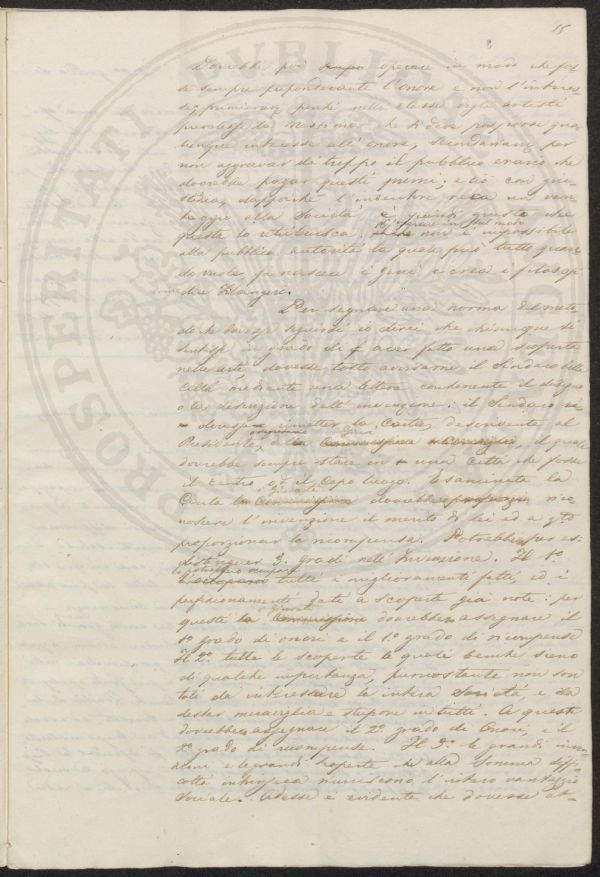 15
Dovrebbe poi sempre operare in modo che fos-
se sempre preponderante l'onore e non l'interes-
se; primieram. perchè nelle stesse
la Massima che si deve posporre qua-
lunque interesse all'onore, secondariam. per
non aggravar da troppo il pubblico erario che
dovrebbe pagar questi premi; e ciò con giu-
stizia, dapoichè l'inventore reca un van-
taggio alla Società è quindi giusto che
questa lo retribuisca.
di operare in tal modo
non è impossibile
alla pubblica autorità la quale può tutto quan-
do vuole, fa nascere i geni e crea i filosofi
dice Filangeri.
Per segnare una norma del meto-
do che dovesse seguirsi io direi che chiunque si
sentisse in grado di aver fatto una scoperta
nelle arti dovesse tosto avvisarne il Sindaco della
Città mediante una lettera contenente il disegno
o la descrizione dell'invenzione: il Sindaco
dovesse rimetter la Carta descrivente al
Presidente, della Commissione il quale
dovrebbe sempre stare in una città che fosse
il centro od il Capo luogo. Esaminata la
Carta la Commissione dovrebbe rico-
noscere l'invenzione il merito di lei ed a
proporzionar la ricompensa. Potrebbesi per es.
distinguer 3. gradi nell'Invenzione. Il 1.º
tutti i miglioramenti fatti, ed i
perfezionamenti dati a scoperte già note: per
questi i Giurati la Commissione dovrebber assegnare il
1º grado di onori e il 1.º grado di ricompense
Il 2º tutte le scoperte le quali benchè sieno
di qualche importanza, purnostante non son
tali da interessare la intiera Società e da
destar meraviglia e stupore in tutti. A queste
dovrebber assegnare il 2º grado di Onori, e il
2º grado di ricompense. Il 3º le grandi inven-
zioni e le grandi scoperte che alla somma diffi-
coltà intrinseca riuniscono l'intero vantaggio
Sociale. Adesso è evidente che dovesse at-
PROSPERITATI PVBLICAE